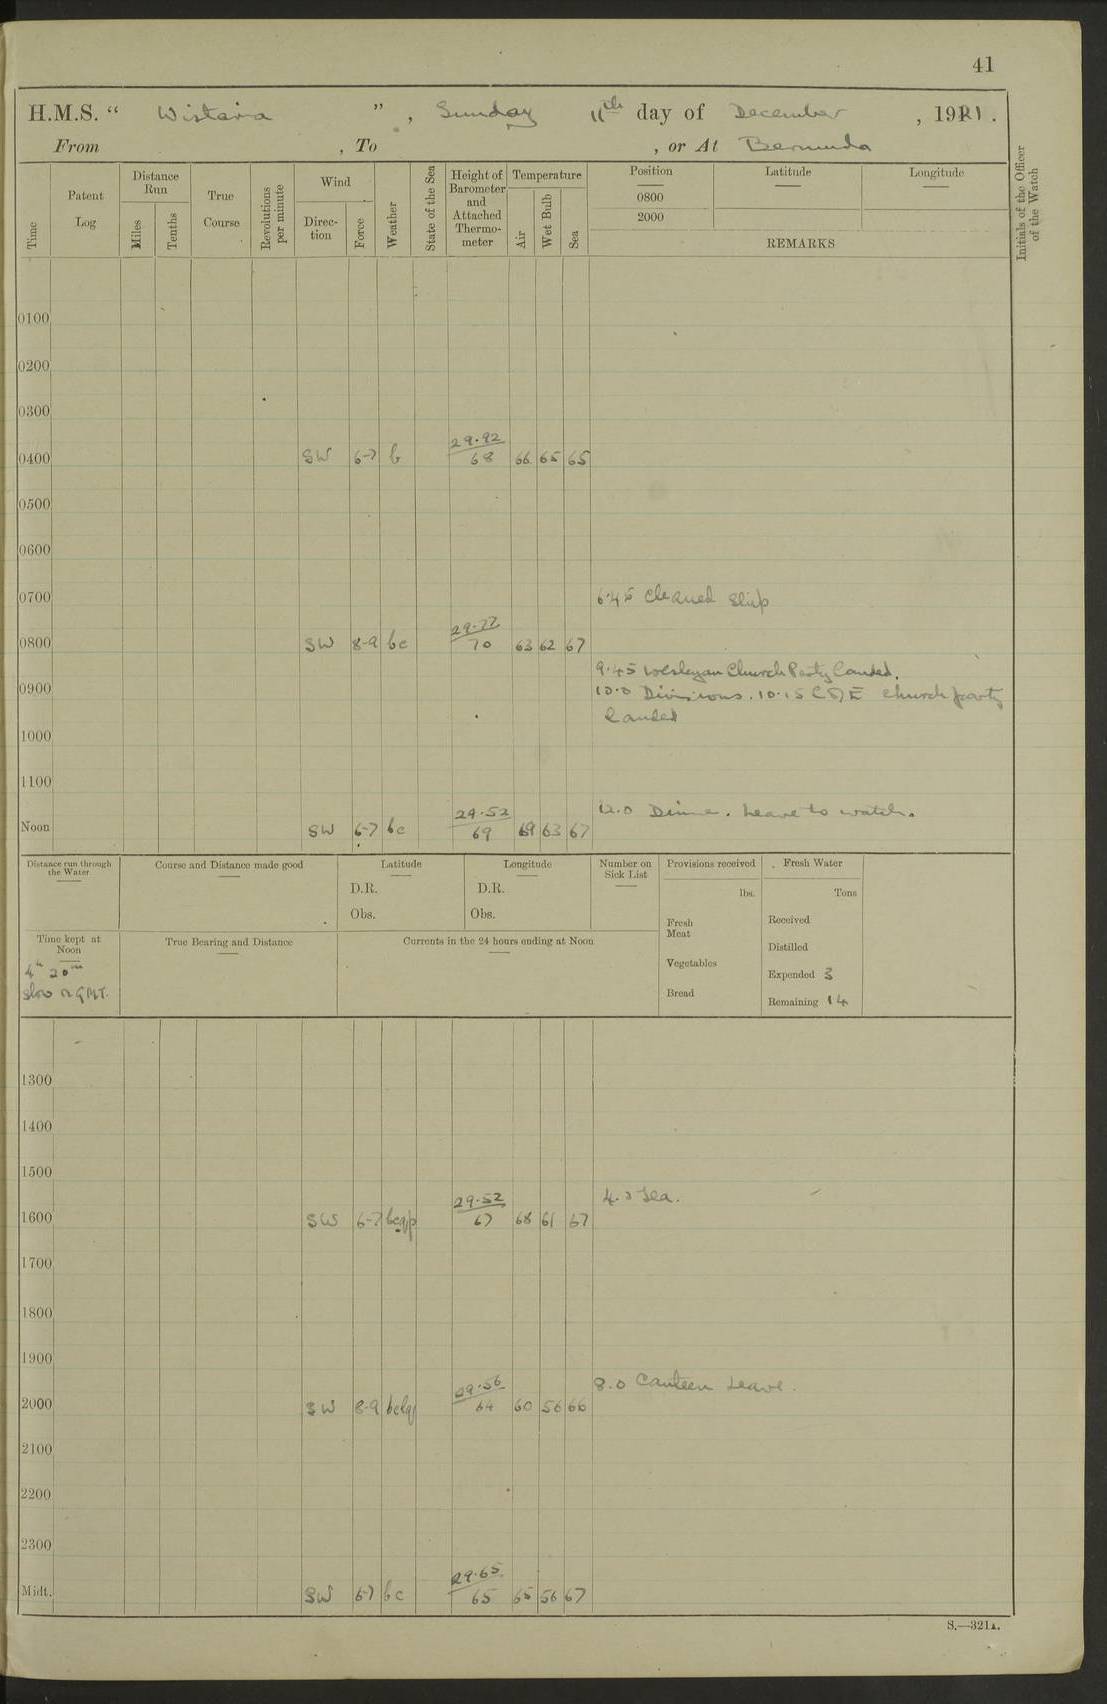 41
H.M.S. “ Wistaria ” , Sunday 11th day of December , 1921 .
From , To , or At Bermuda
Time
Patent Log
Distance Run
Miles
Tenths
True Course
Revolutions per minute
Wind
Direc-tion
Force
Weather
State of the Sea
Height of Barometer and Attached Thermo-meter
Temperature
Air
Wet Bulb
Sea
Position Latitude Longitude
0800
2000
REMARKS
Initials of the Officer of the Watch
0100
0200
0300
29.92
0400 SW 6-7 b 68 66 65 65
0500
0600
0700 6.45 Cleaned Ship
29.77
0800 SW 8-9 bc 70 63 62 67
9.45 Wesleyan Church Party landed.
0900 10.0 Divisions. 10.15 C of E church party
landed
1000
1100
29.52 12.0 Dinner. Leave to watch.
Noon SW 6-7 bc 69 69 63 67
Distance run through the Water
Course and Distance made good
Latitude
D.R.
Obs.
Longitude
D.R.
Obs.
Number on Sick List
Provisions received
lbs.
Fresh Meat
Vegetables
Bread
Fresh Water
Tons
Received
Distilled
Expended 3
Remaining 14
Time kept at Noon
4h 20m
slow on GMT.
True Bearing and Distance
Currents in the 24 hours ending at Noon
1300
1400
1500
29.52 4.0 Tea.
1600 SW 6-7 bcqp 67 68 61 67
1700
1800
1900
29.56 8.0 Canteen Leave.
2000 SW 8-9 bclq 64 60 56 66
2100
2200
2300
29.65
Midt. SW 6-7 bc 65 65 56 67
S.—321A.